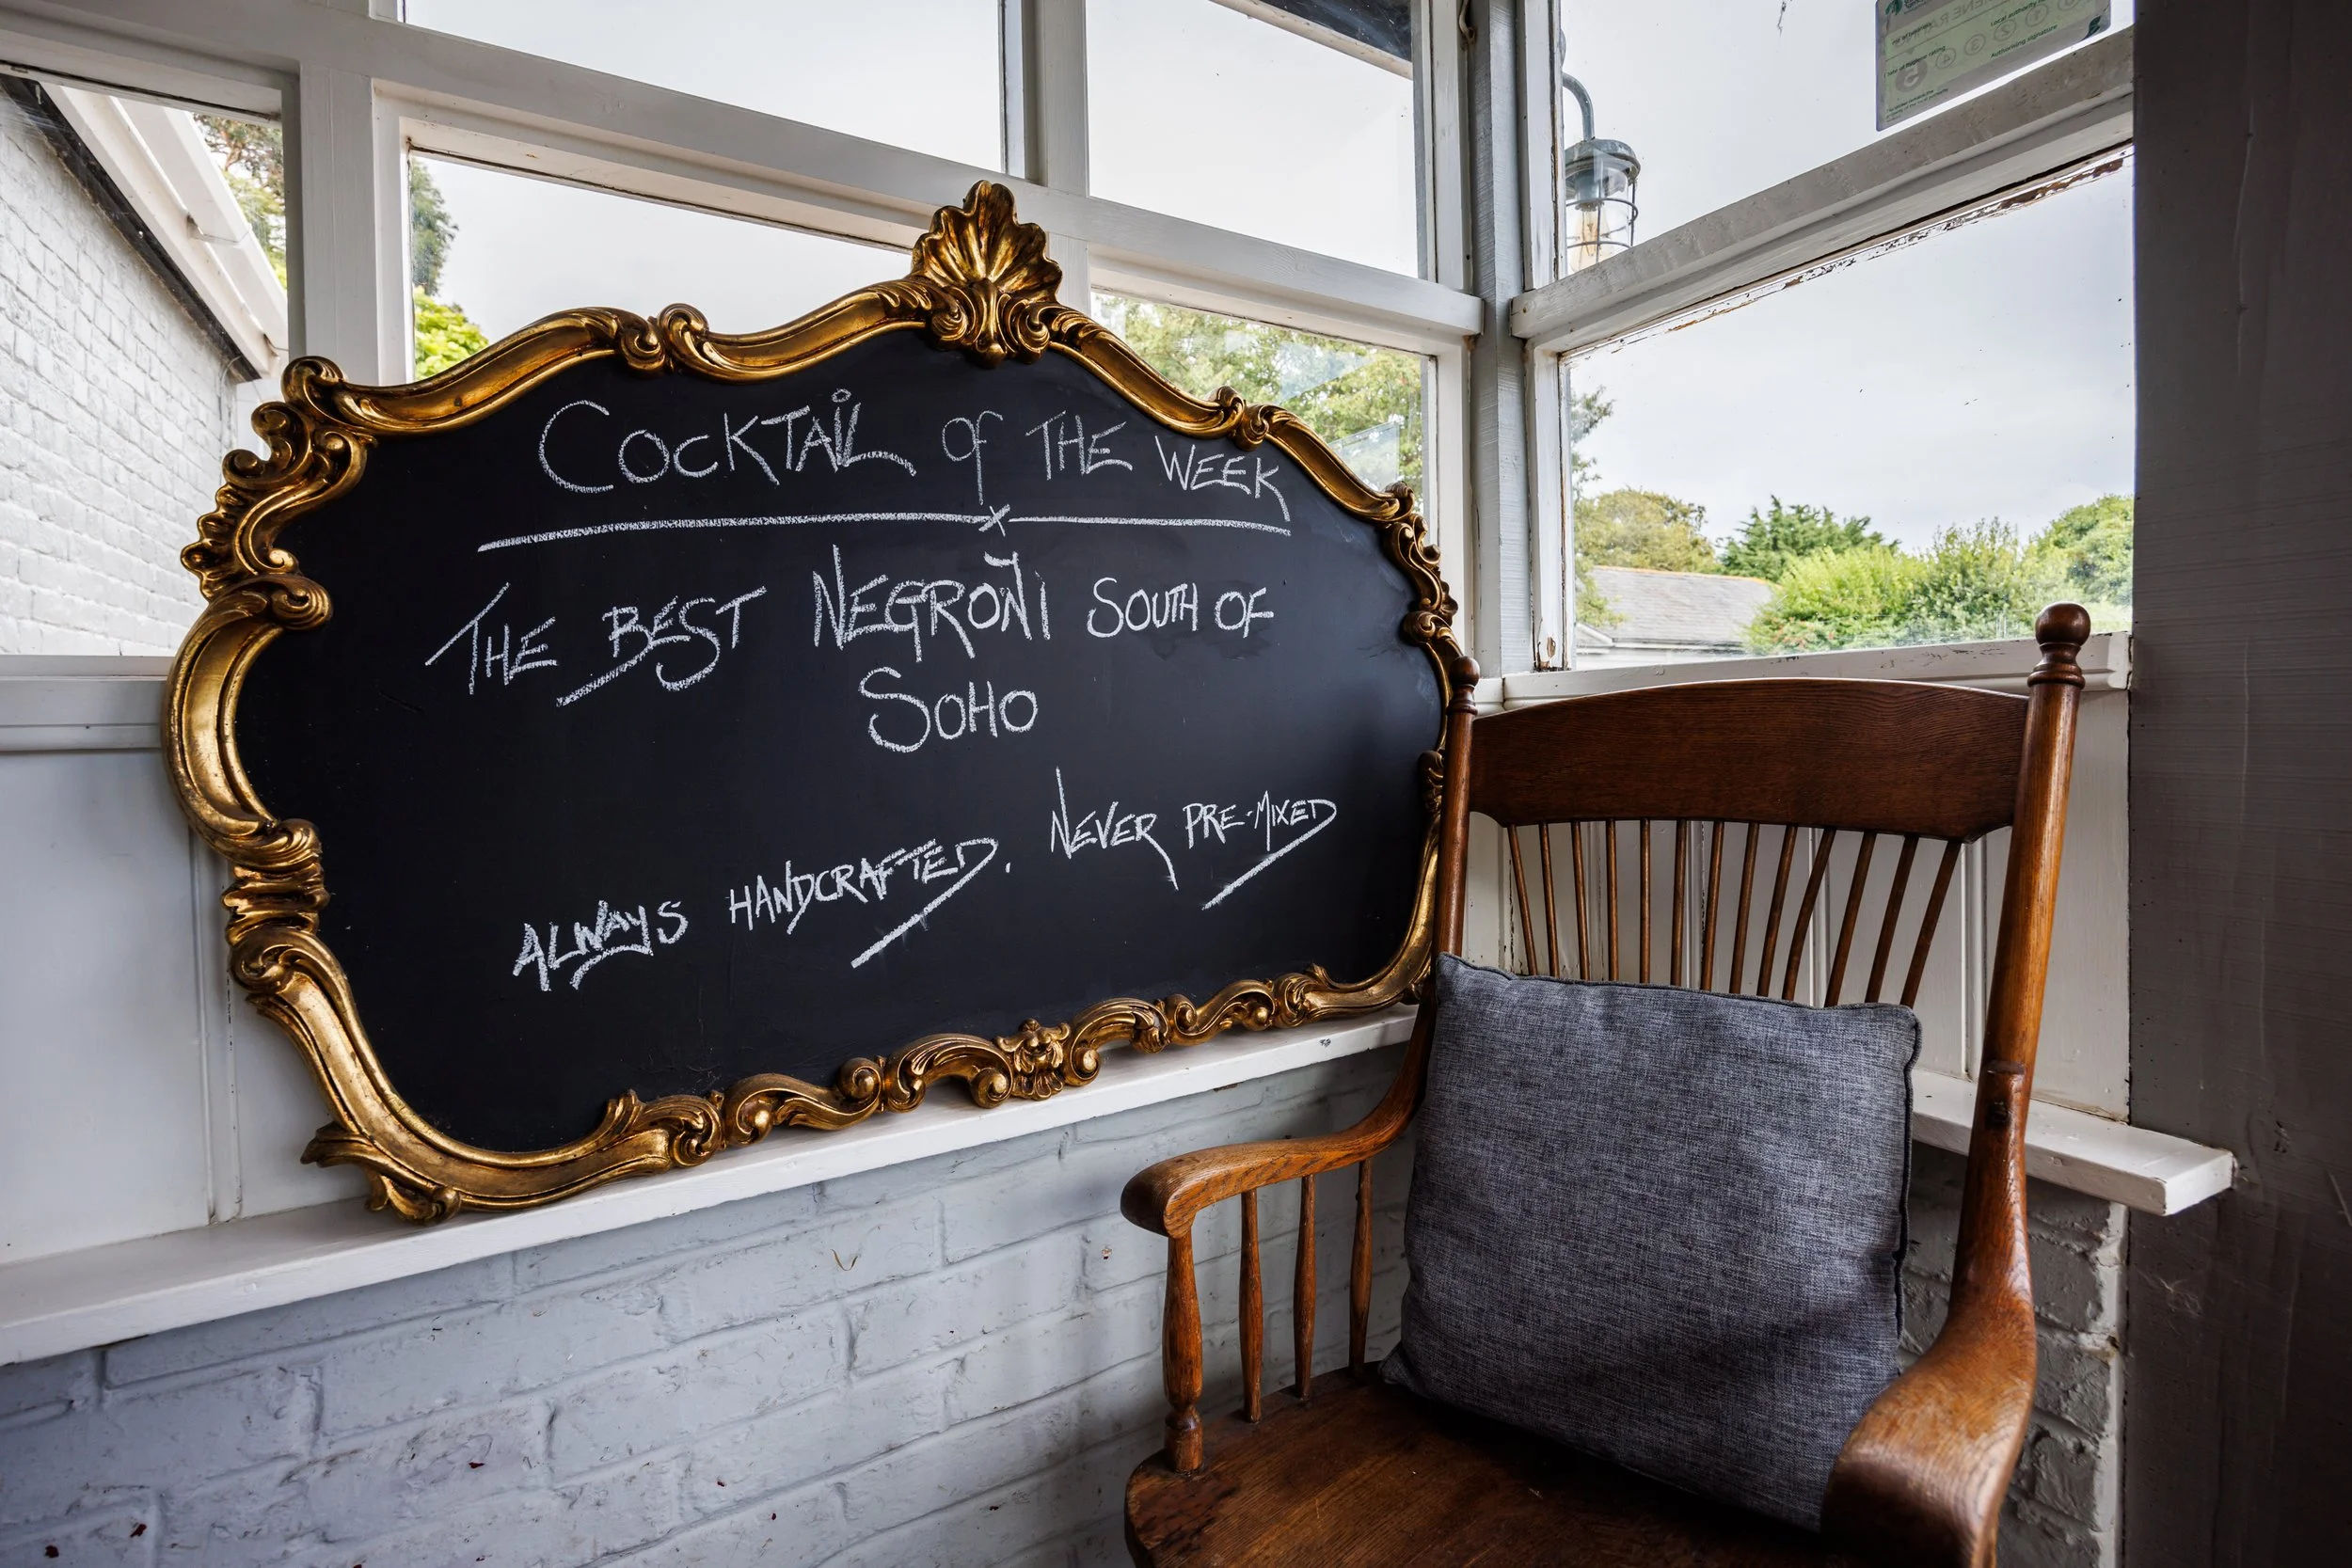 COCKTAiL Of THE WEEK
THE BEST NEGRONI SOUTH OF
SOHO
ALWAYS HANDCRAFTED. NEVER PRE-MIXED